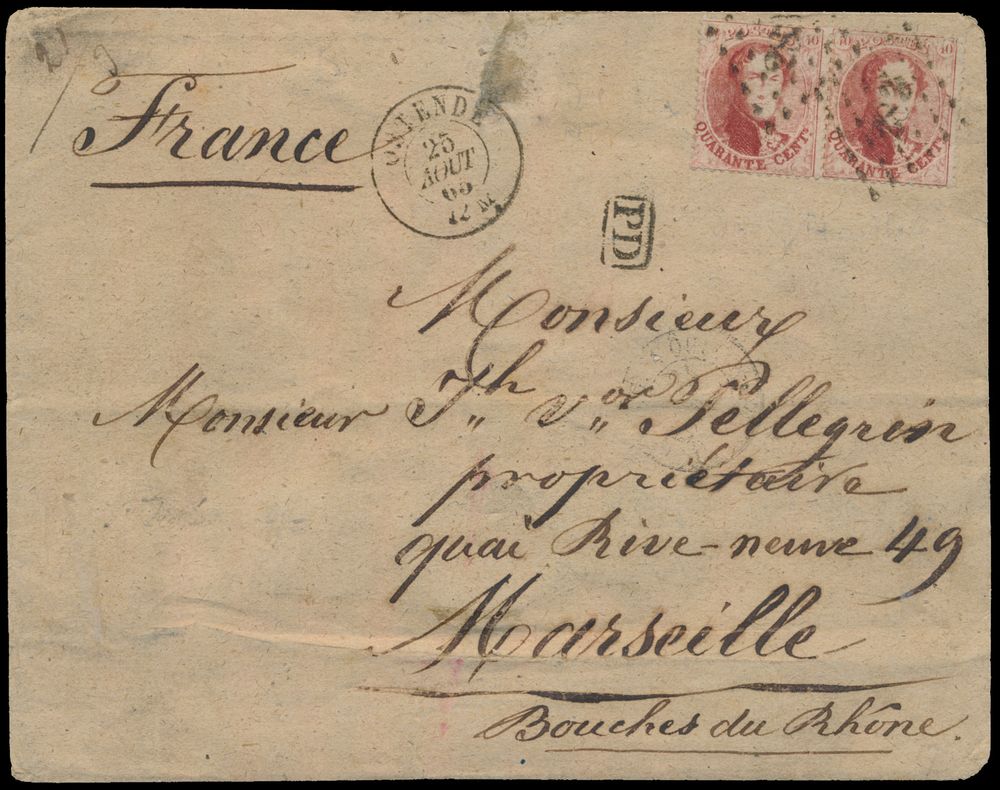 France
OSTENDE
25
AOUT
65
12 M
QUARANTE CENTS
QUARANTE CENTS
PD
Monsieur
Monsieur Jh Vor Pellegrin
propriétaire
quai Rive-neuve 49
Marseille
Bouches du Rhône.